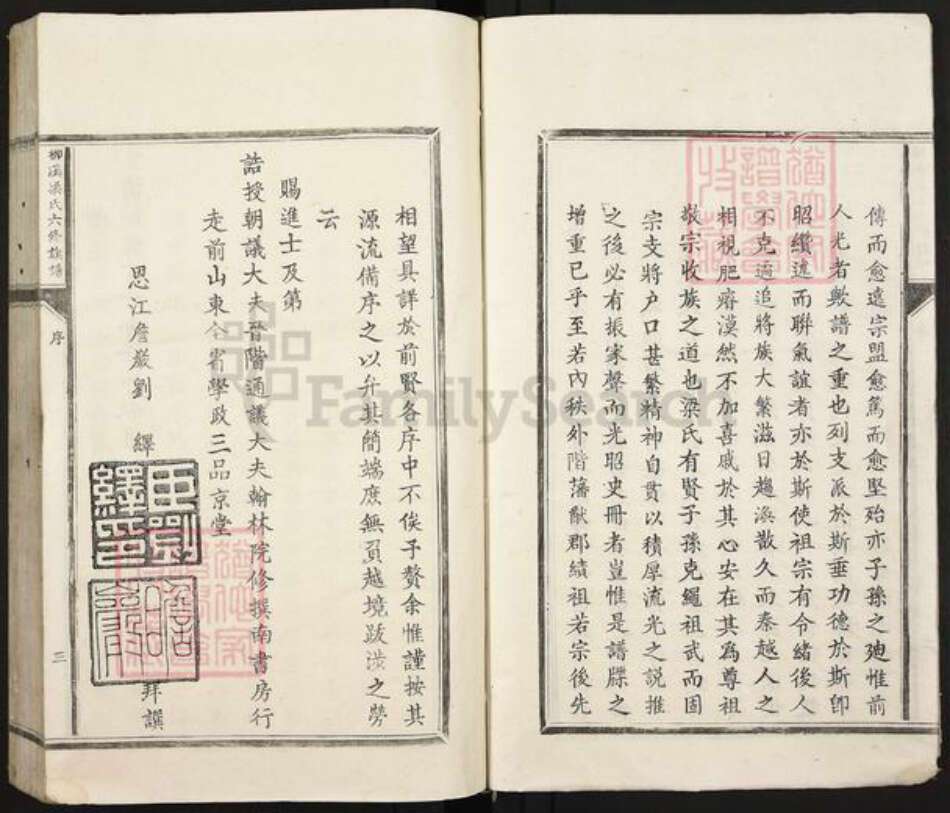 傳而愈遠宗盟愈篤而愈堅殆亦子孫之廸惟前
人光者歟譜之重也列支派於斯垂功德於斯卽
昭纘述而聯氣誼者亦於斯使祖宗有令緒後人
不克遹追將族大繁滋日趨渙散久而秦越人之
相視肥瘠漠然不加喜戚於其心安在其為尊祖
敬宗收族之道也梁氏有賢子孫克繩祖武而固
宗支將户口甚繁精神自貫以積厚流光之説推
之後必有振家聲而光昭史冊者豈惟是譜牒之
增重已乎至若內秩外階藩猷郡績祖若宗後先
相望具詳於前賢各序中不俟予贅余惟謹按其
源流備序之以弁其簡端庶無負越境跋涉之勞
云
賜進士及第
誥授朝議大夫晉階通議大夫翰林院修撰南書房行
走前山東全省學政三品京堂
思江詹巖劉繹
拜譔
柳溪梁氏六修族譜
序
三
FamilySearch